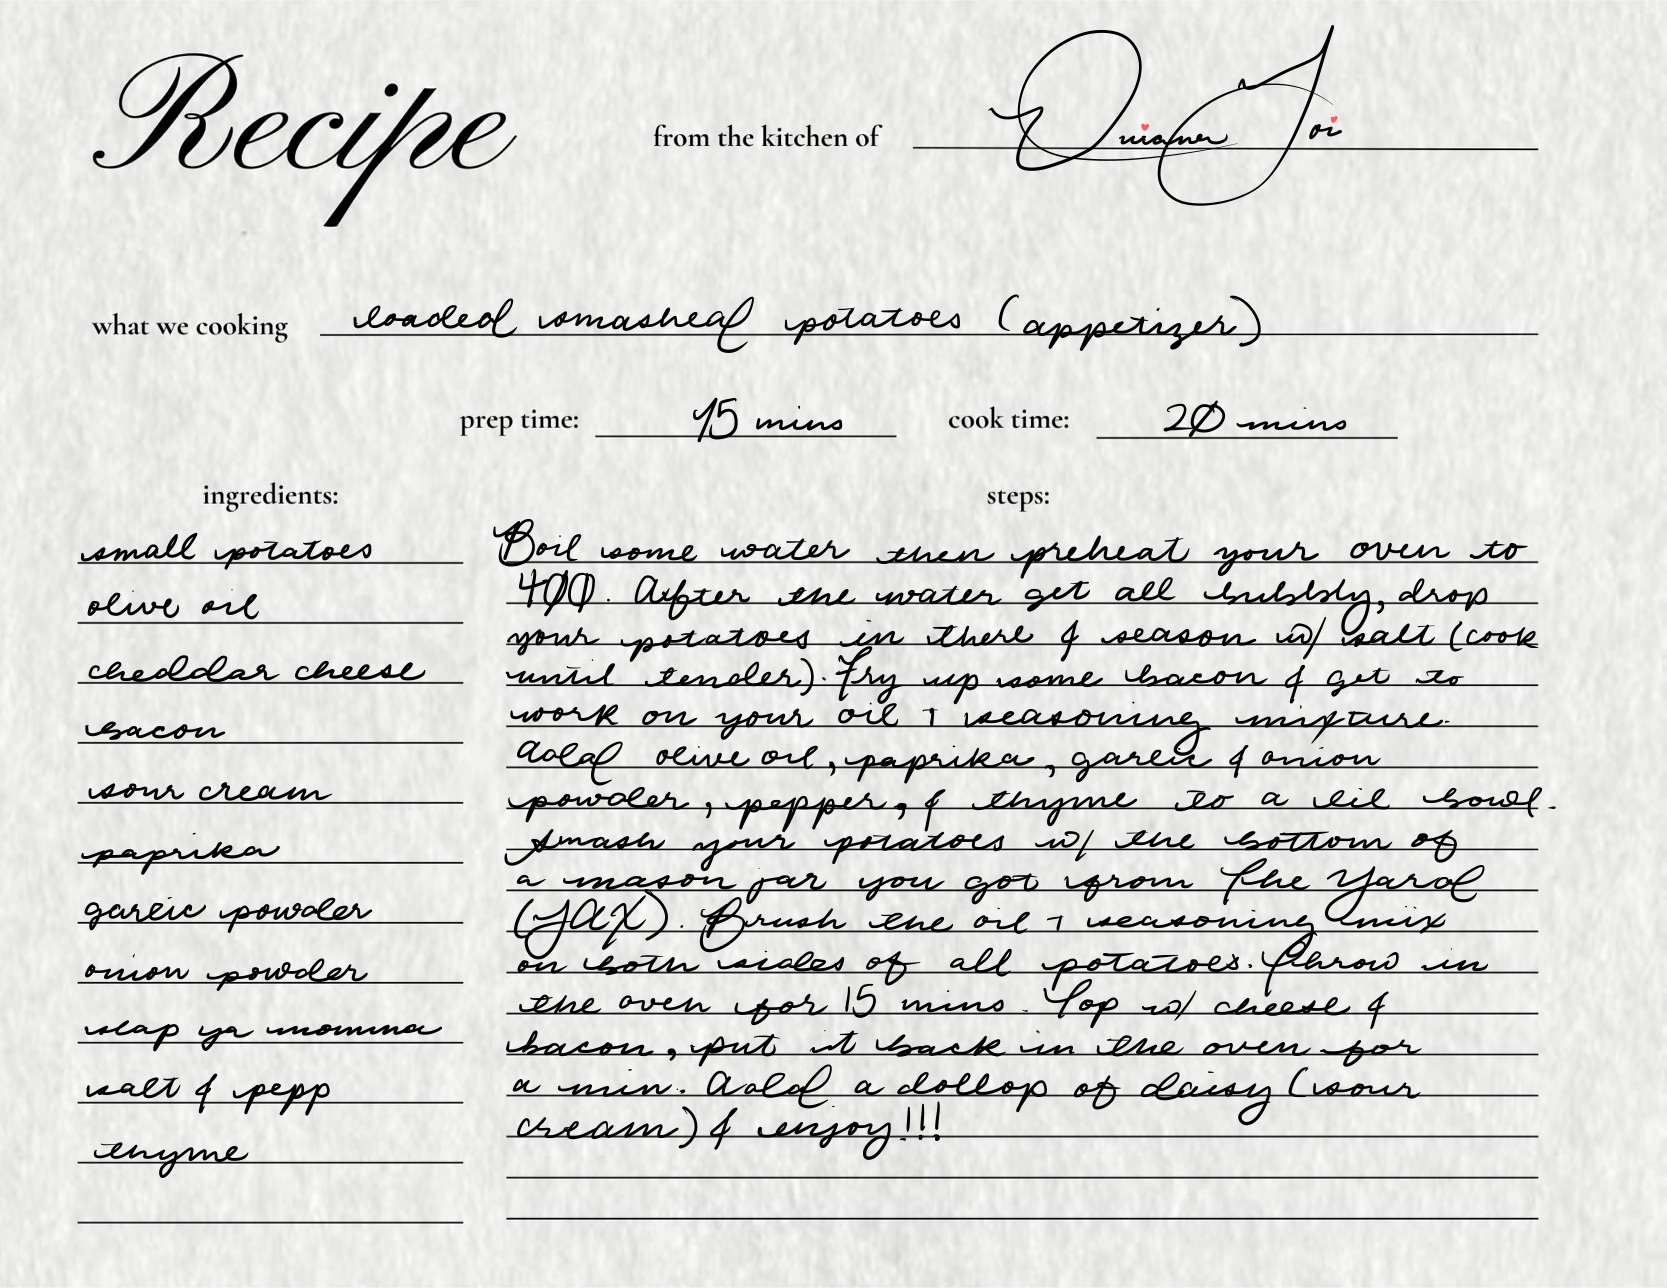 Recipe
from the kitchen of Joi
what we cooking loaded smashed potatoes (appetizer)
prep time: 15 mins cook time: 20 mins
ingredients:
small potatoes
olive oil
cheddar cheese
bacon
sour cream
paprika
garlic powder
onion powder
slap ya momma
salt & pepp
thyme
steps:
Boil some water then preheat your oven to
400. After the water get all bubbly, drop
your potatoes in there & season w/ salt (cook
until tender). Fry up some bacon & get to
work on your oil + seasoning mixture.
Add olive oil, paprika, garlic & onion
powder, pepper, & thyme to a lil bowl.
Smash your potatoes w/ the bottom of
a mason jar you got from The Yard
(JAX). Brush the oil + seasoning mix
on both sides of all potatoes. Throw in
the oven for 15 mins. Top w/ cheese &
bacon, put it back in the oven for
a min. Add a dollop of daisy (sour
cream) & enjoy!!!